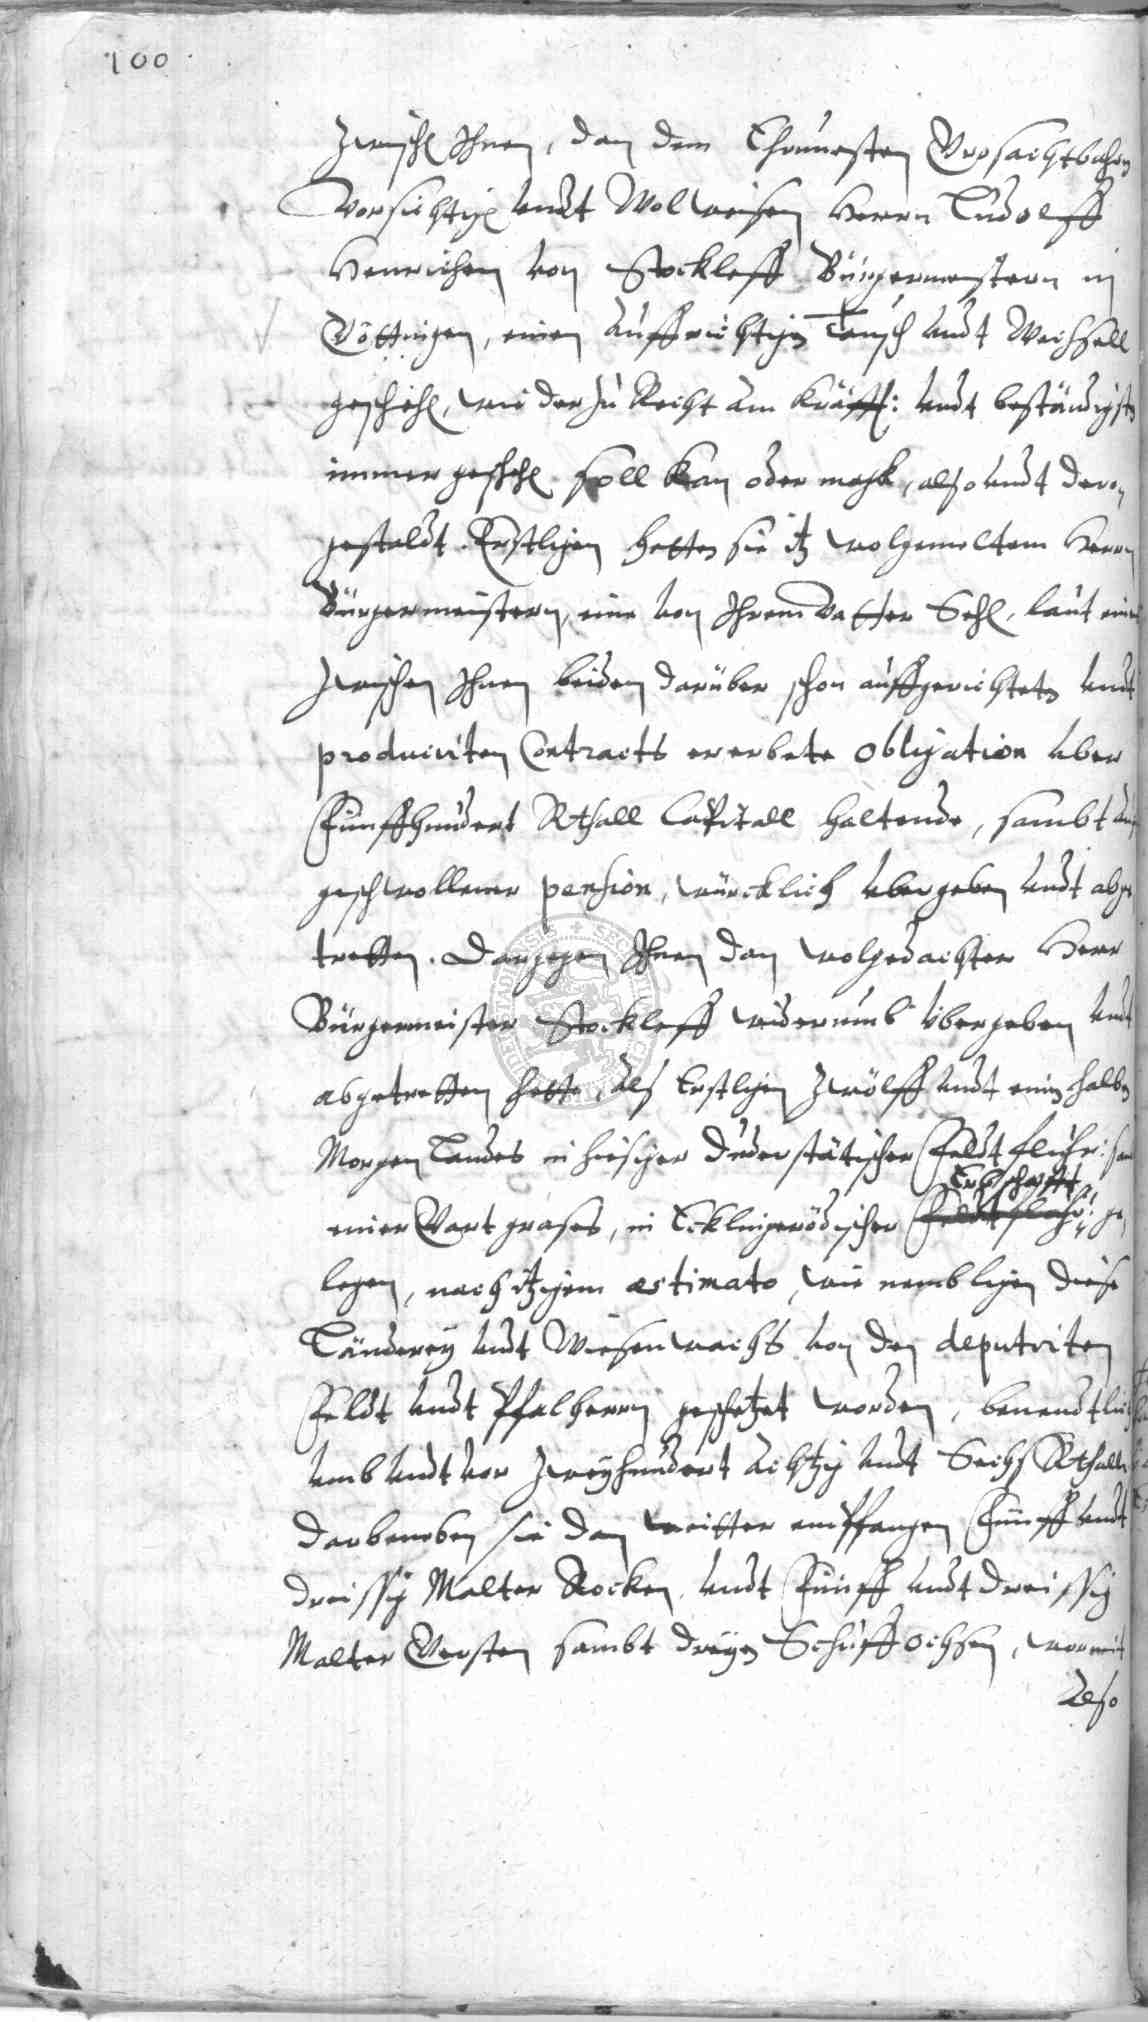 100
Zwischen Ihnen, dan dem Ehrnvesten Grosachtbahren
Vorsichtigen undt Wol Weisen Herrn Ludolff
Henrichen von Stockleff Bürgermeistern in
Göttingen, einen auffrichtigen Tausch undt Wechsell
geschehen, wie der zu Recht am kräfft: undt beständigsten
immer geschehen soll kan oder magk, also undt der
gestaldt. Erstlichen hetten sie itz wolgemeltem Herrn
Bürgermeistern, eine von Ihrem Vatter Sehl. laut eines
zwischen Ihnen beiden darüber schon auffgerichteten undt
produciiten Contracts ererbete obligation uber
Fünffhundert Rthall Capitall haltende, sambt
geschwollener pension, würcklich ubergeben undt abge
tretten. Dargegen Ihnen dan wolgedachter Herr
Bürgermeister Stockleff widerumb übergeben undt
abgetretten hette, als Erstlichen Zwölff undt ein halben
Morgen Landes in hiesiger Duderstätischer Feldt fluhr:
Erbschafft
einer Vart grases, in Ecklingerödischer Feldtfluhr: ge
legen, nach itzigem aestimato, wie nemblichen diese
Länderey undt Wiesenwachs von den deputriten
Feldt undt Pfalherrn geschetzet worden, benendtlich
umb undt vor Zweyhundert achtzig undt Sechs Rthall
darbeneben sie dan weitter empfangen Fünff undt
dreissig Malter Rocken undt Fünff undt dreissig
Malter Gersten sambt dreyen Schuffochsen, wormit
Also